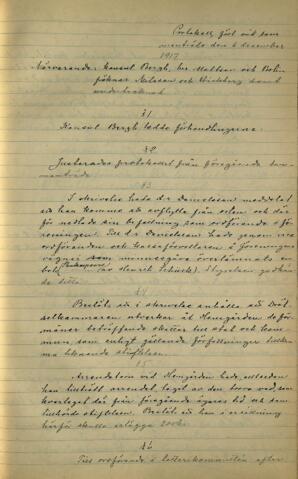 Protokoll, fört vid sam-
manträde den 6 december
1917
Närvarande: Konsul Bergh, hrr Mattson och Bolin
fröknar Nilsson och Wickberg samt
undertecknad
§1
Konsul Bergh ledde förhandlingarna.
§2
Justerades protokollet från föregående sam-
manträde
§3
I skrivelse hade dr Danielsson meddelat
att han komme att avflytta från orten och där-
för nedlade sin befattning som ordförande i för-
eningen. Till dr Danielsson hade genom vice
ordföranden och kassaförvaltaren å Föreningens
vägnar som minnesgåva överlämnats en
bok (Shakespeare av Henrik Schück). Styrelsen godkän-
de detta.
§4
Beslöts att i skrivelse anhålla att Drät-
selkammaren utverkar åt Hemgården de för-
måner beträffande skatter till stat och kom-
mun som enligt gällande författningar tillkom-
ma liknande stiftelser.
§5
Arrendatorn vid Hemgården hade,
tillhört arrendet, tagit av den torra ved, som
kvarlegat där från föregående ägares tid och som
tillhörde stiftelsen. Beslöts att han i ersättning
härför skulle erlägga 200 kr.
§6
Till ordförande i lotterikommittén efter